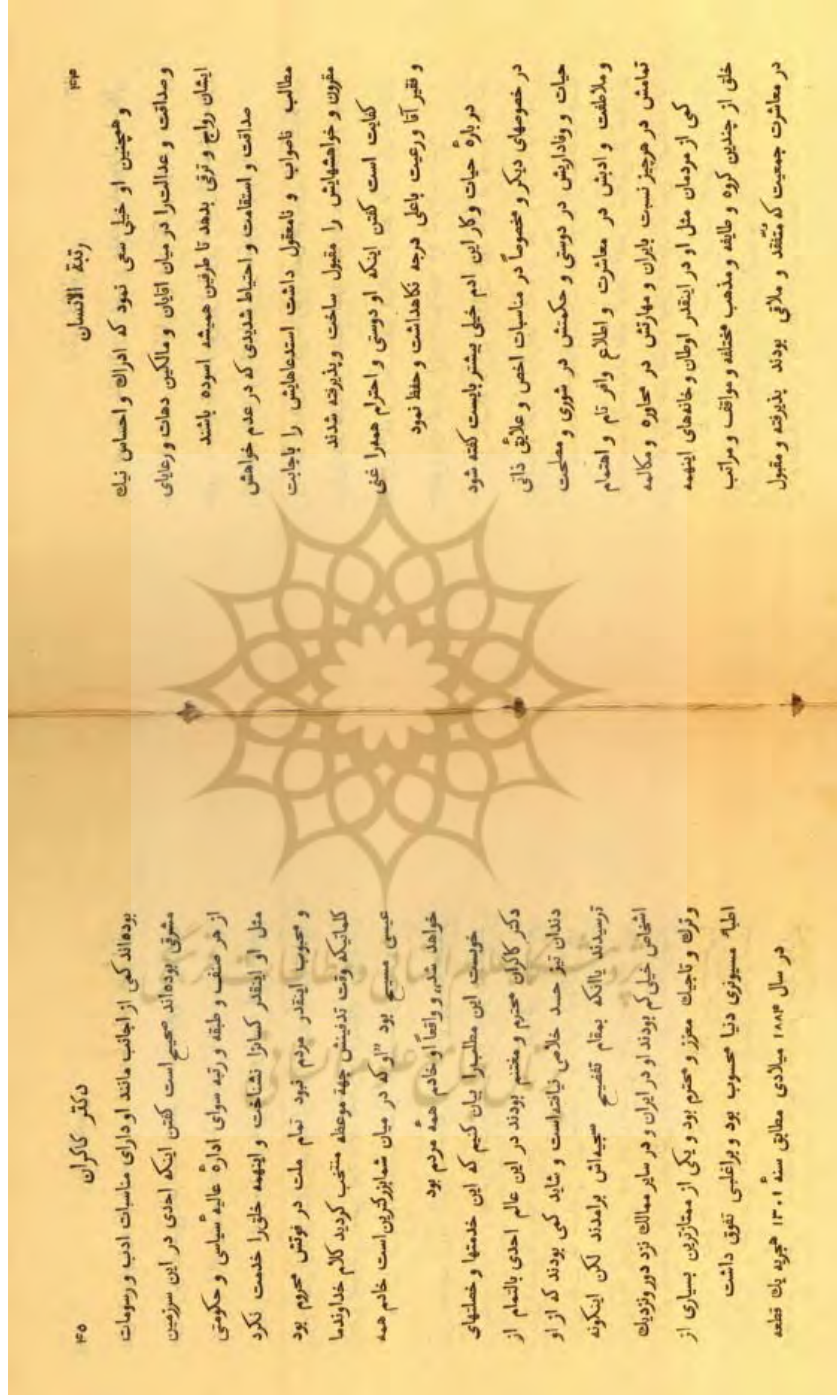 ۴۴
رتبة الانسان
و همچنین او خیلی سعی نمود که ادراك و احساس نیك
و صداقت و عدالت را در میان اقایان و مالکین دهات و رعایای
ایشان رواج و ترقی بدهد تا طرفین همیشه اسوده باشند
صداقت و استقامت و احتیاط شدیدی که در عدم خواهش
مطالب ناصواب و نامعقول داشت استدعاهایش را باجابت
مقرون و خواهشهایش را مقبول ساخت وپذیرفته شدند
کفایت است کفتن اینکه او دوستی و احترام همه‌را غنی
و فقیر آقا ورعیت باعلی درجه نکاهداشت وحفظ نمود
در بارهٔ حیات وکار این ادم خیلی بیشتر بایست کفته شود
در خصوصهای دیکر و مخصوصاً در مناسبات اخص و علایق ذاتی
حیات و ووفاداریش در دوستی و حکمتش در شوری و مصلحت
و ملاطفت و ادبش در معاشرت و اطلاع وافر تام و اهتمام
تمامش در هرچیز نسبت بایران و مهارتش در محاوره و مکالمه
کمی از مردمان مثل او در اینقدر اوطان و خانه‌های اینهمه
خلق از چندین کروه و طایفه و مذهب مختلفه و مواقف و مراتب
در معاشرت جمعیت که متّفقد و ملاقی بودند پذیرفته و مقبول
۴۵
دکتر کاکران
بوده‌اند کمی از اجانب مانند او دارای مناسبات ادب و رسومات
مشرقی بوده‌اند صحیح است کفتن اینکه احدی در این سرزمین
از هر صنف و طبقه و رتبه سوای ادارهٔ عالیهٔ سیاسی و حکومتی
مثل او اینقدر کسانرا نشناخت و اینهمه خلق‌را خدمت نکرد
و محبوب اینقدر مردم نبود تمام ملت در فوتش محروم بود
کلماتیکه وقت تدفینش جهة موعظه منتخب کردید کلام خداوند ما
عیسی مسیح بود "او که در میان شما بزرکترین است خادم همه
خواهد شد" و واقعاً او خادم همهٔ مردم بود
خویست این مطلب‌را بیان کنیم که این خدمتها و خصلتهای
دکتر کاکران محترم و مغتنم بودند در این عالم احدی بالتمام از
دندان تیز حسد خلاص نیافته‌است و شاید کمی بودند که از او
ترسیدند یاانکه بمقام تفضیح سجیه‌اش برامدند لکن اینکونه
اشخاص خیلی کم بودند او در ایران و در سایر ممالك نزد دور ونزدیك
وترك و تاجیك معزز و محترم بود و یکی از ممتازترین بسیاری از
اطباءِ مسیونری دنیا محسوب بود وبراغلبی تفوق داشت
در سال ۱۸۸۴ میلادی مطابق سنهٔ ۱۳۰۱ هجریه یك قطعه